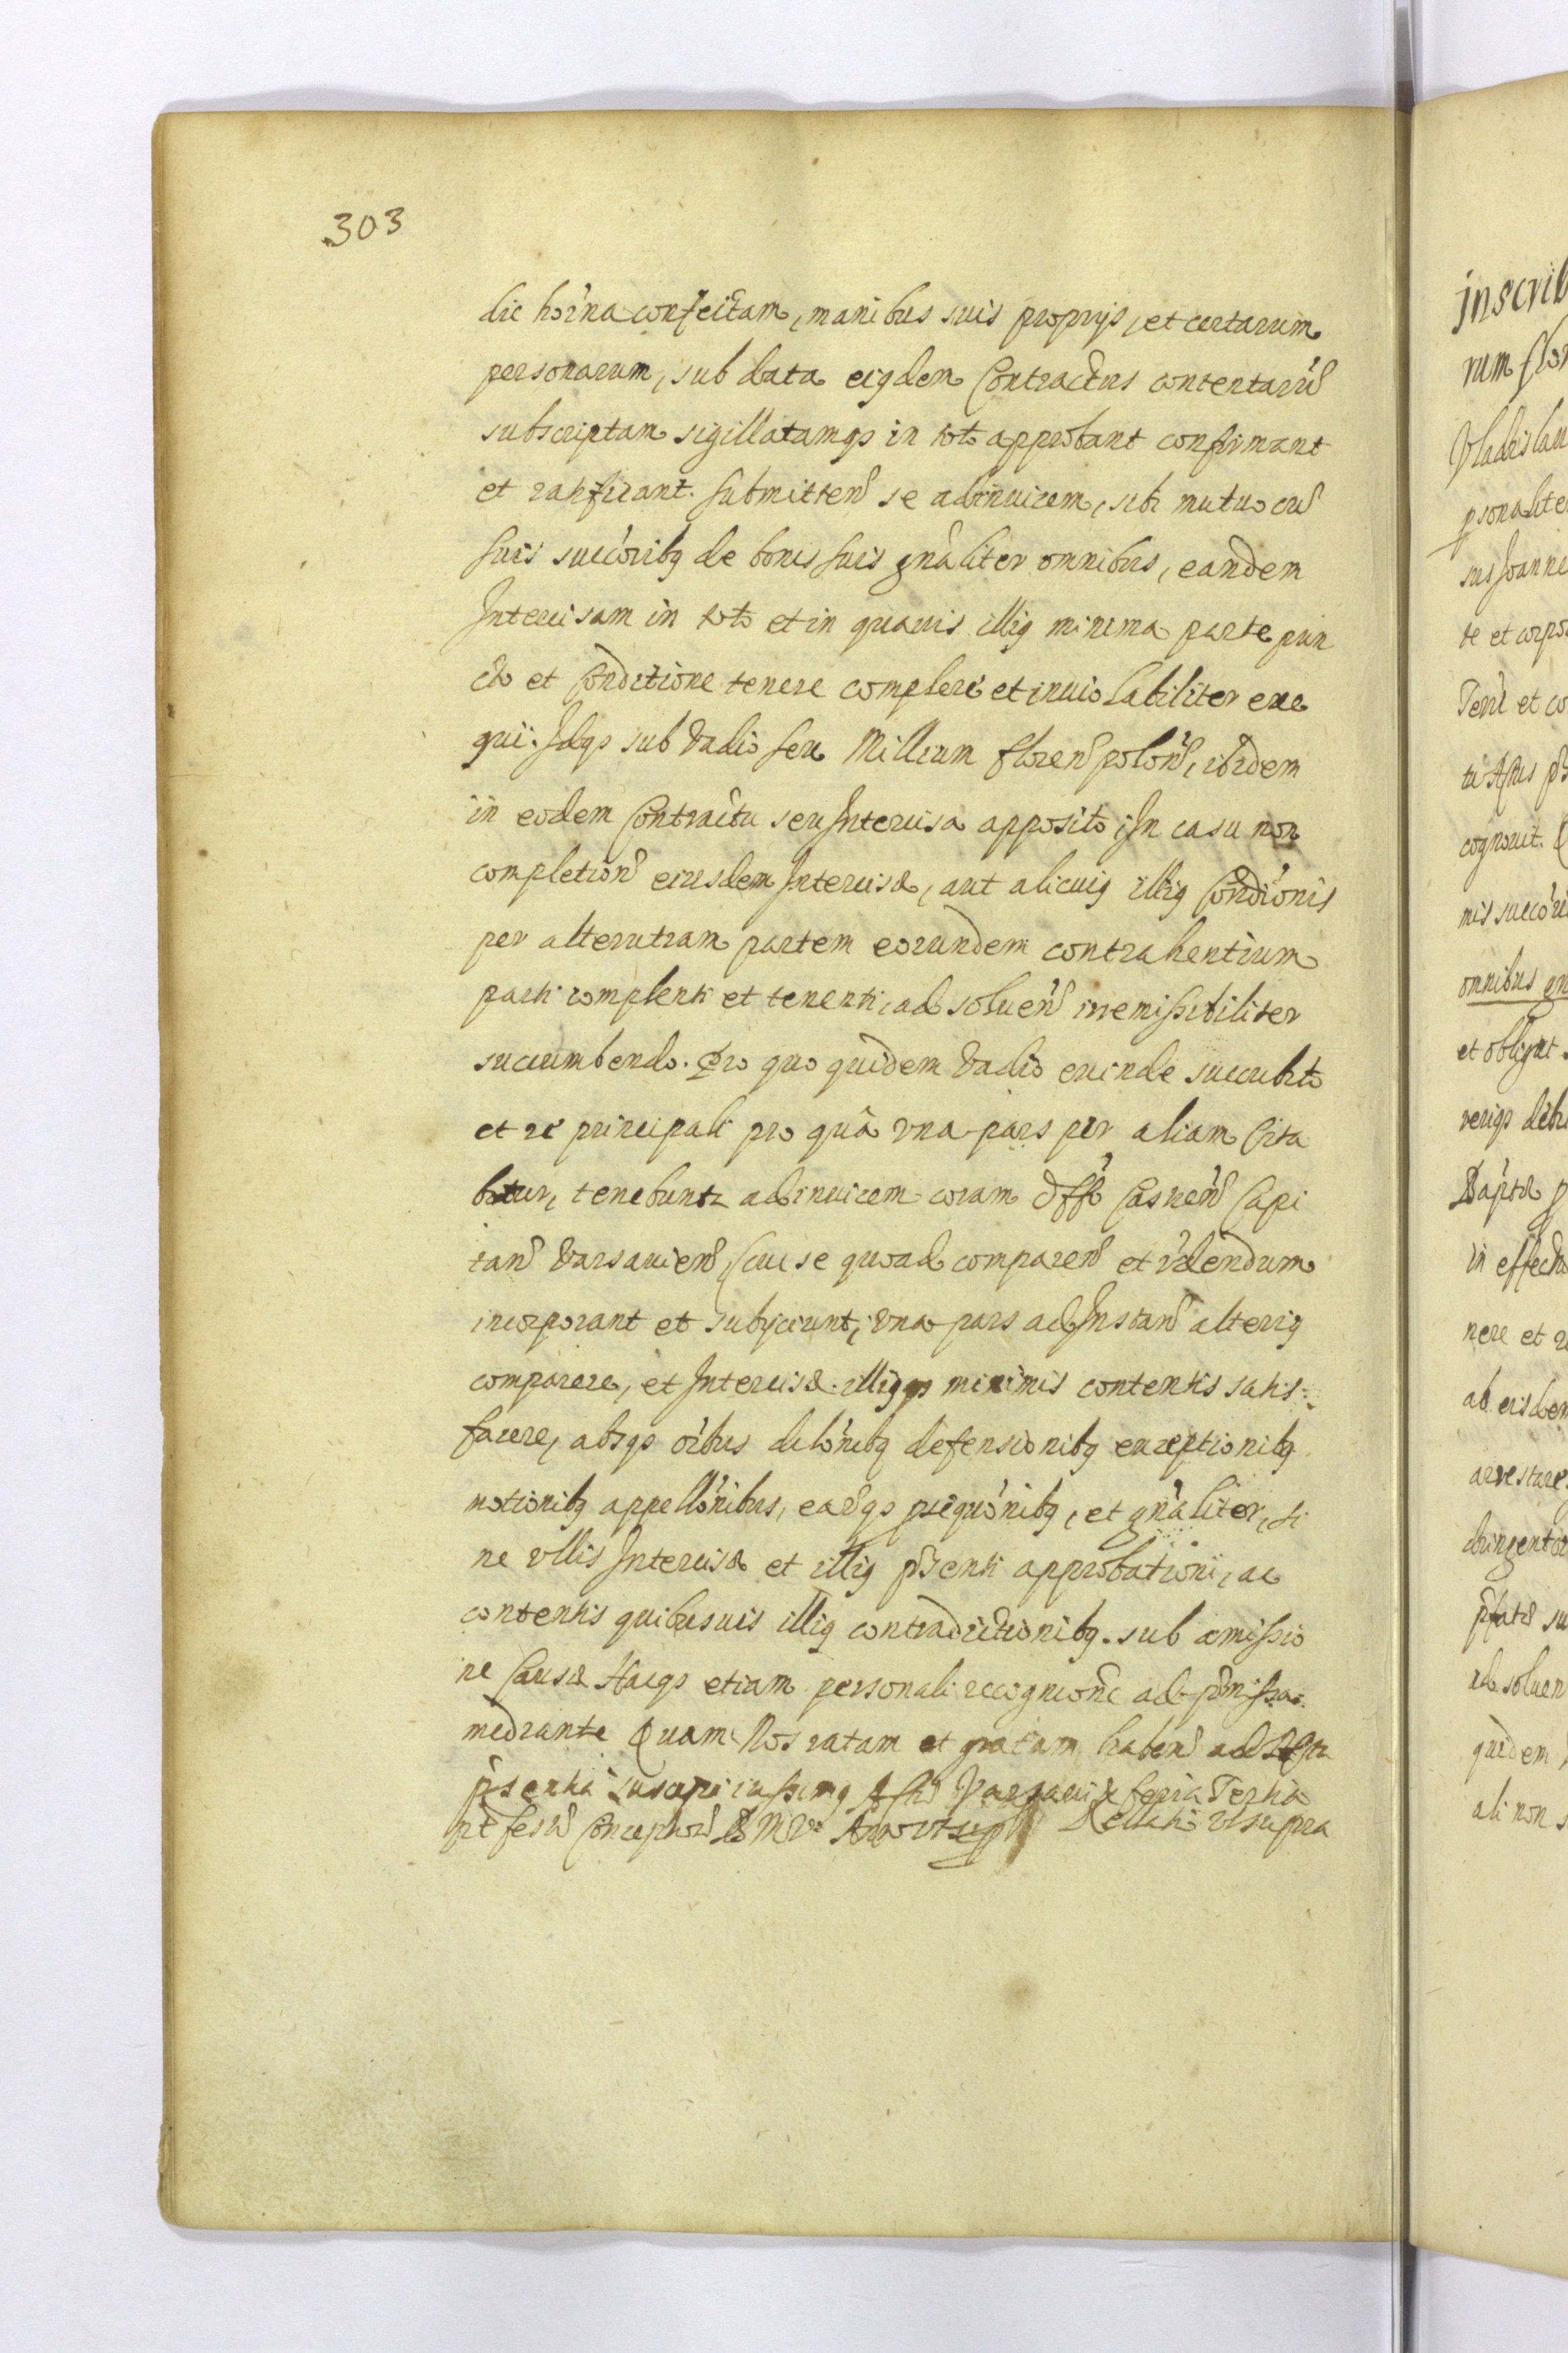 303
die hoĩna confectam, manibus suis proprijs, et certarum
personarum, sub data eiɋdem Contractus contentarũ
subscriptam sigillatamq; in toto approbant confirmant
et ratificant. submitten̄ se adinuicem, sibi mutuo cū
suis succo͂ribɋ de bonis suis gn͂aliter omnibus, eandem
Intercisam in toto et in quauis illiɋ minima parte pun
cto et Conditione tenere complere et inuiolabiliter exe
qui. Idq; sub Vadio sex Millium floren̄ polon̄, ibidem
in eodem Contractu seu Intercisa apposito, In casu non
completion̄ eiusdem Intercisæ, aut alicuiɋ illiɋ Condi͂onis
per alterutram partem eorundem contrahentium
parti complenti et tenenti, ad soluen̄ irremissibiliter
succumbendo. Pro quo quidem Vadio exinde succubito
et re principali pro quâ vna pars per aliam Cita
bitur, tenebuntr adinuicem coram Off͂o Casnen̄ Capi
tan̄ Varsauien̄, Cui se quoad comparen̄ et r͂ndendum
incorporant et subijciunt, vna pars ad Instan̄ alteriɋ
comparere, et Intercisæ illiɋq; minimis contentis satis
facere, absq; o͂ibus dilo͂nibɋ defensionibɋ exceptionibɋ
motionibɋ appello͂nibus, earq; psequo͂nibɋ, et gn͂aliter, si
ne vllis Intercisæ et illiɋ pn͂ti approbationi, ac
contentis quibusuis illiɋ contradictionibɋ. sub amissio
ne Causæ Hacq; etiam personali recognio͂ne ad pr͂missa
mediante Quam Nos ratam et gratam haben̄ ad Acta
pn͂tia suscipi iussimɋ Act͂ Varsauiæ feria Tertia
Conceptio͂ B M V Anno vt sup Relatio vt supra
inscrib
rum flor
Vladislau
psonaliter
sus Joanne
te et corpo
Terr͂ et co
cognouit.
nis succo͂ri
omnibus gn
et obligat
in effectu
nere et
ab eisdem
arrestare
ad soluen
quidem
ali non s